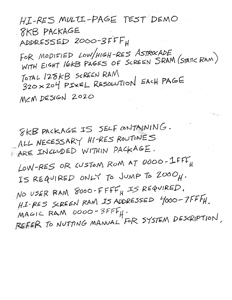 HI-RES MULTI-PAGE TEST DEMO
8KB PACKAGE
ADDRESSED 2000-3FFFH
FOR MODIFIED LOW/HIGH-RES ASTROCADE
WITH EIGHT 16KB PAGES OF SCREEN SRAM (STATIC RAM)
TOTAL 128KB SCREEN RAM
320 x 204 PIXEL RESOLUTION EACH PAGE
MCM DESIGN 2020
8KB PACKAGE IS SELF CONTAINING.
ALL NECESSARY HI-RES ROUTINES
ARE INCLUDED WITHIN PACKAGE.
LOW-RES OR CUSTOM ROM AT 0000-1FFFH
IS REQUIRED ONLY TO JUMP TO 2000H.
NO USER RAM 8000-FFFFH IS REQUIRED.
HI-RES SCREEN RAM IS ADDRESSED 4000-7FFFH.
MAGIC RAM 0000-3FFFH.
REFER TO NUTTING MANUAL FOR SYSTEM DESCRIPTION.